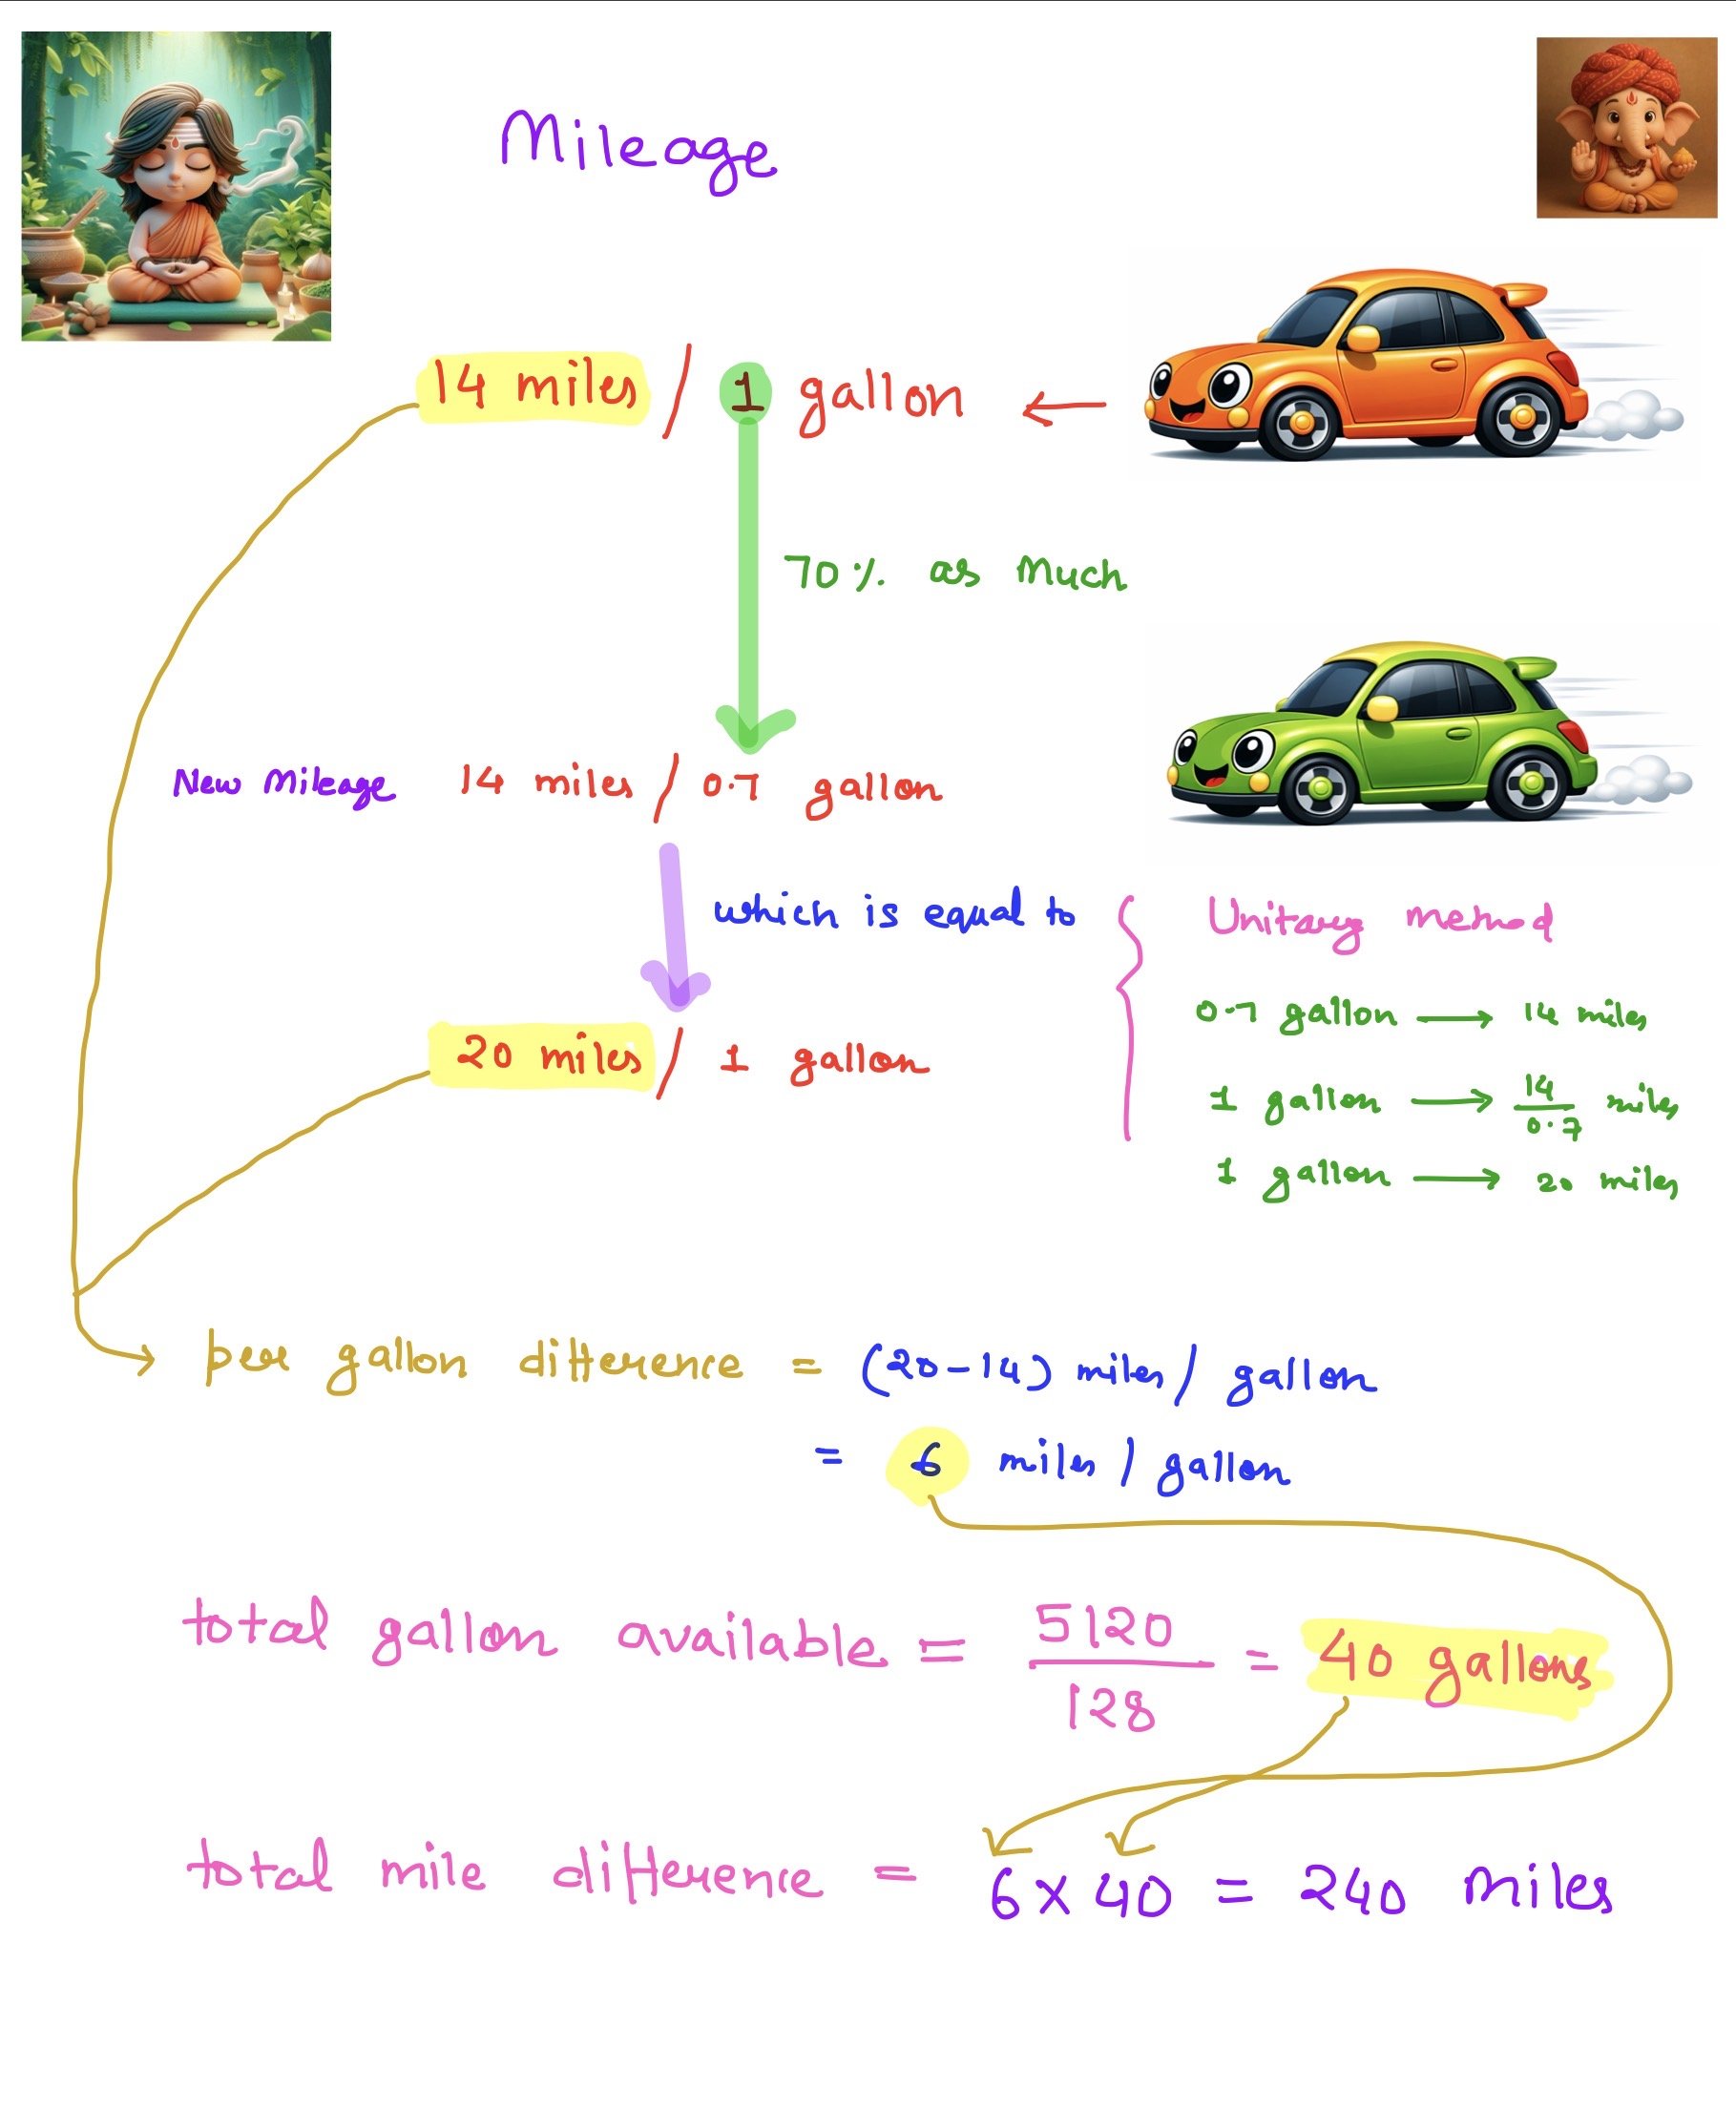 Mileage
14 miles / 1 gallon ←
70% as much
New Mileage 14 miles / 0.7 gallon
which is equal to
Unitary method
0.7 gallon → 14 miles
20 miles / 1 gallon
1 gallon → 14/0.7 miles
1 gallon → 20 miles
per gallon difference = (20-14) miles / gallon
= 6 miles / gallon
total gallon available = 5120/128 = 40 gallons
total mile difference = 6 x 40 = 240 miles